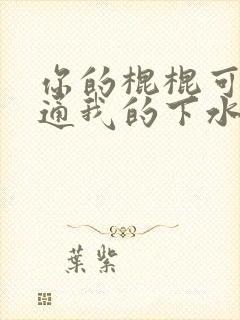 你的棍棍可
通我的下水
葉紫